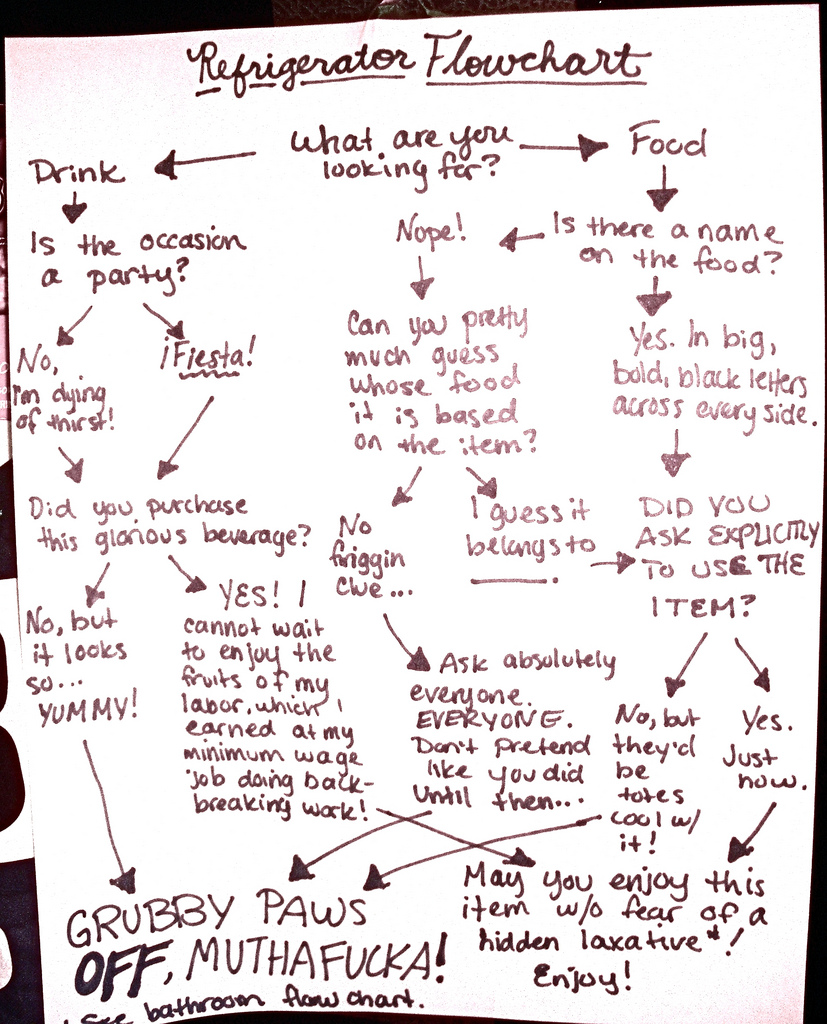 Refrigerator Flowchart
What are you
looking for?
Drink
Food
Is the occasion
a party?
Nope!
Is there a name
on the food?
No,
I'm dying
of thirst!
¡Fiesta!
Can you pretty
much guess
whose food
it is based
on the item?
Yes. In big,
bold, black letters
across every side.
Did you purchase
this glorious beverage?
No
friggin
clue...
I guess it
belongs to
______.
DID YOU
ASK EXPLICITLY
TO USE THE
ITEM?
No, but
it looks
so...
YUMMY!
YES! I
cannot wait
to enjoy the
fruits of my
labor, which I
earned at my
minimum wage
job doing back-
breaking work!
Ask absolutely
everyone.
EVERYONE.
Don't pretend
like you did
until then...
No, but
they'd
be
totes
cool w/
it!
Yes.
Just
now.
GRUBBY PAWS
OFF, MUTHAFUCKA!
May you enjoy this
item w/o fear of a
hidden laxative*!
Enjoy!
* See bathroom flow chart.